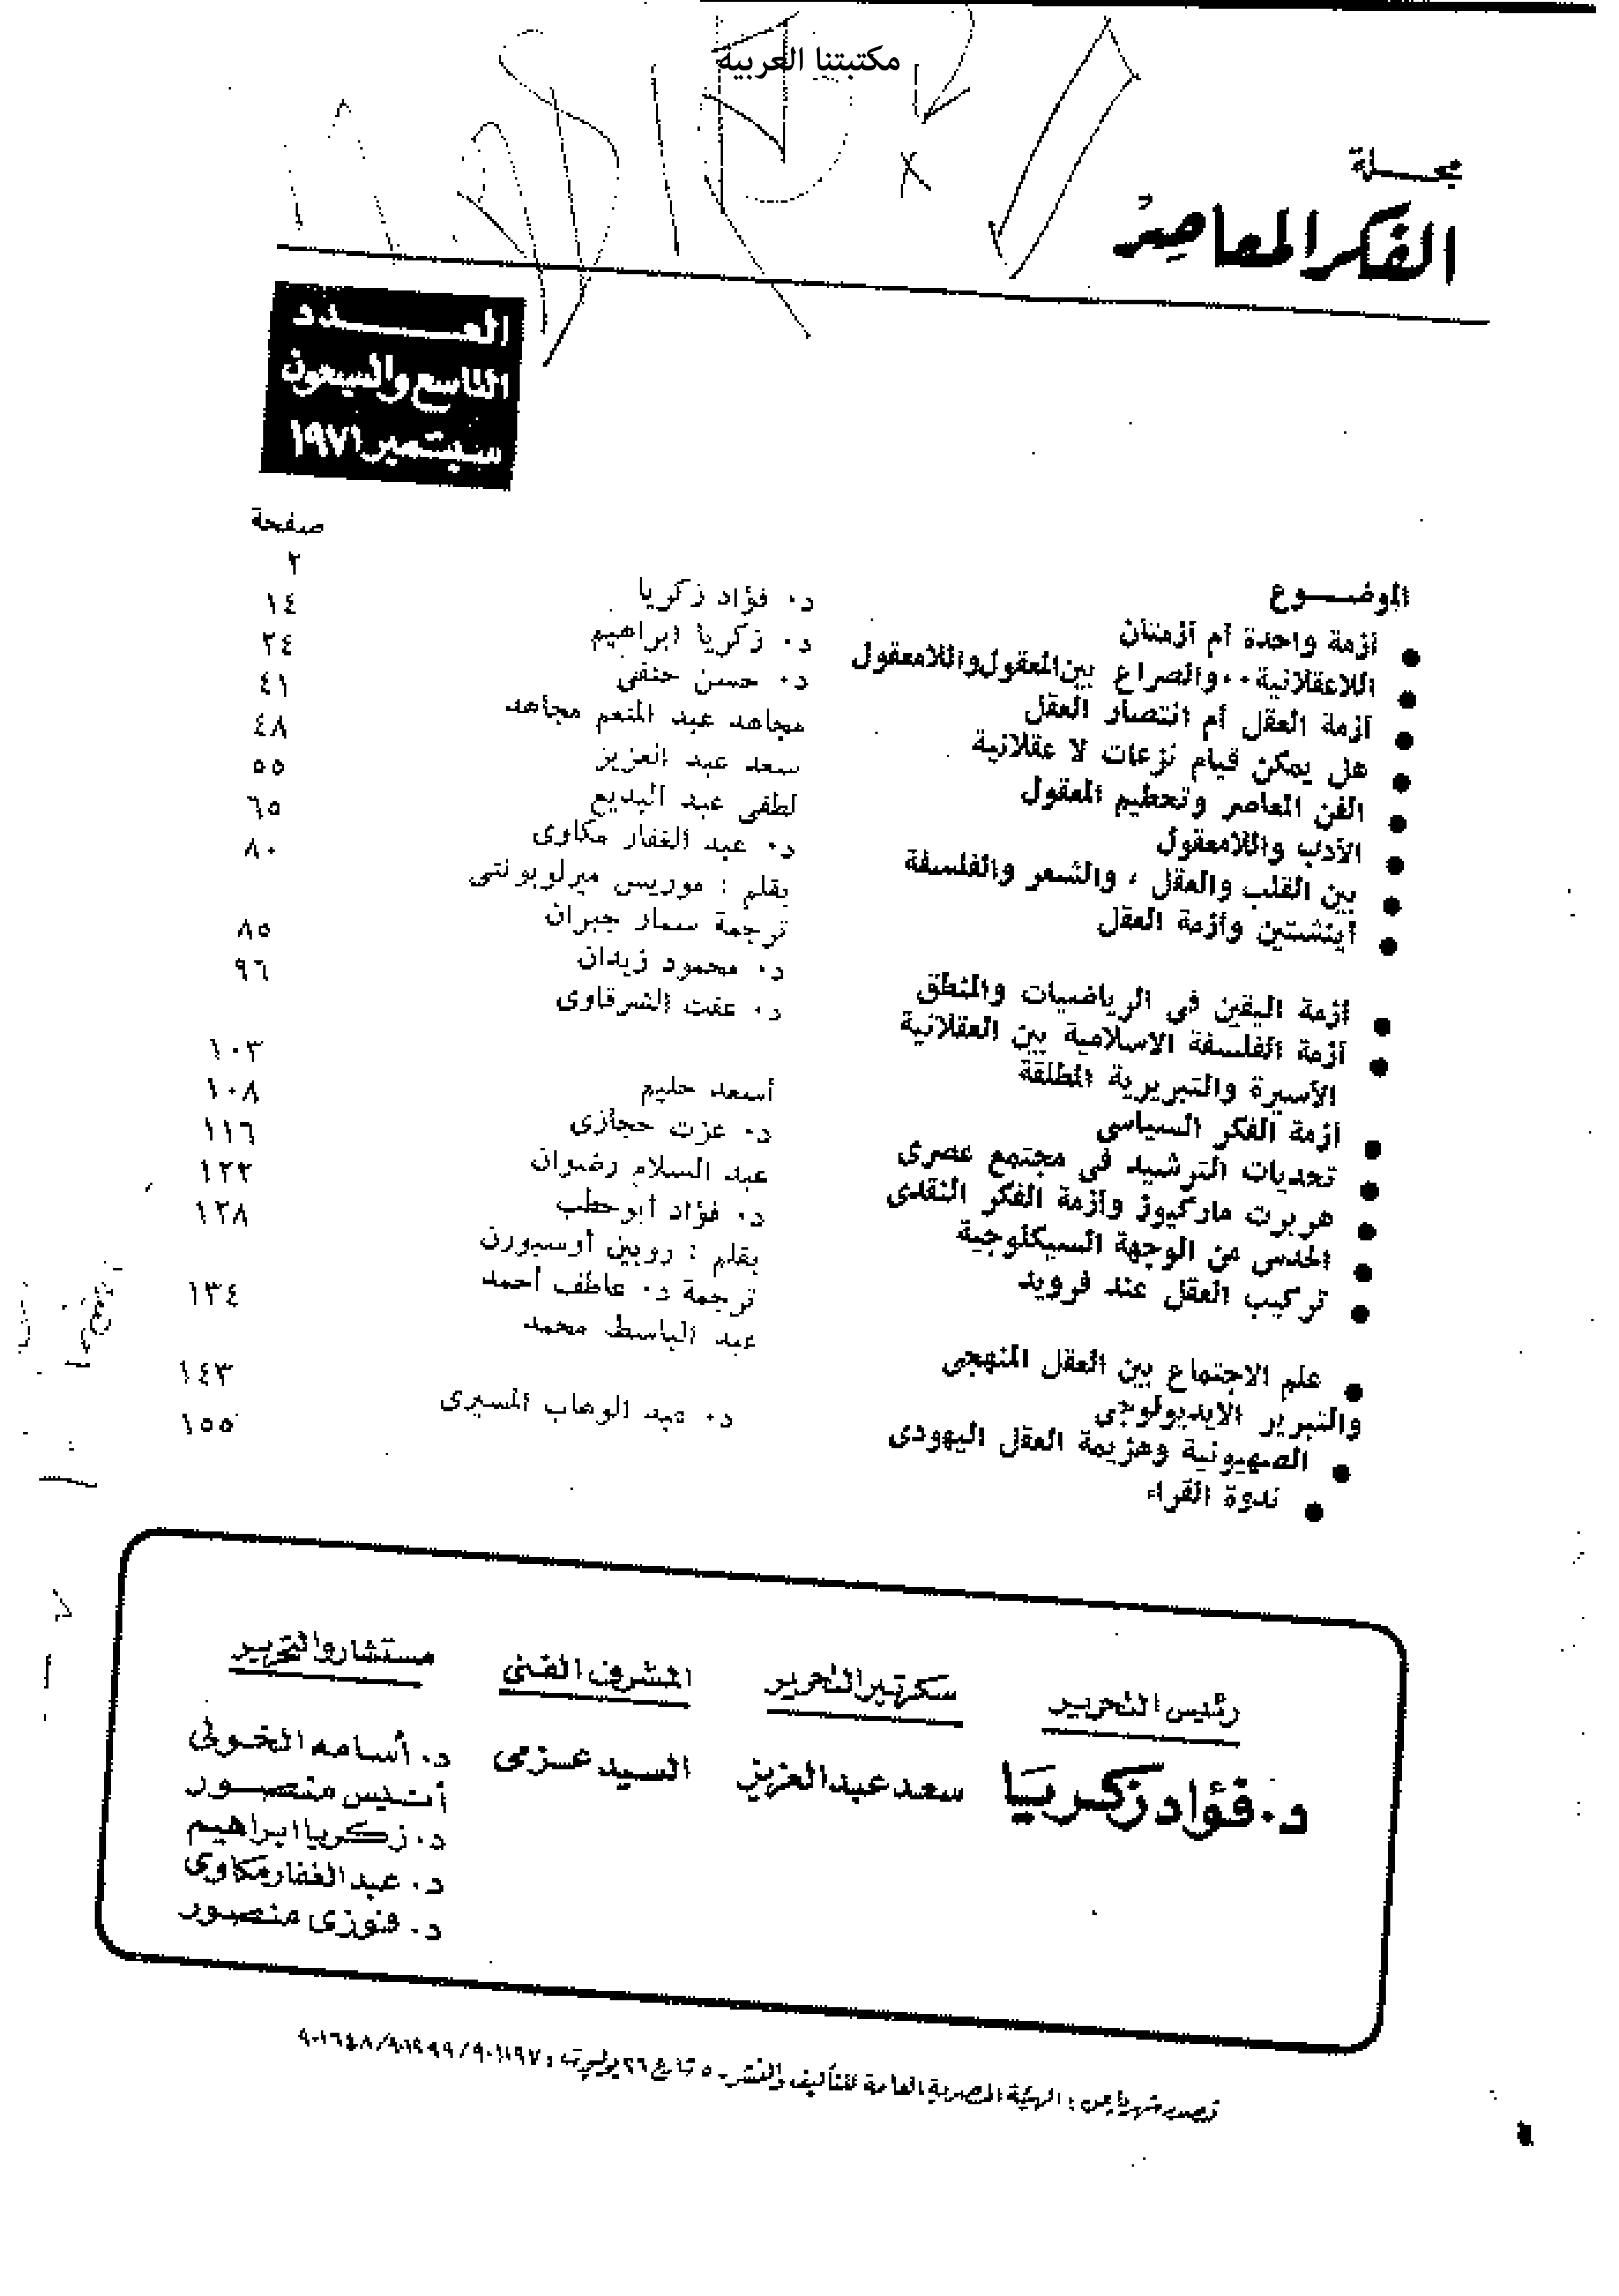 مكتبتنا العربية
مجلة
الفكر المعاصر
العدد
التاسع والسبعون
سبتمبر ١٩٧١
صفحة
الموضوع
أزمة واحدة أم أزمتان د. فؤاد زكريا ٢
اللاعقلانية .. والصراع بين المعقول واللامعقول د. زكريا ابراهيم ١٤
أزمة العقل أم انتصار العقل د. حسن حنفى ٢٤
هل يمكن قيام نزعات لا عقلانية مجاهد عبد المنعم مجاهد ٤١
الفن المعاصر وتحطيم المعقول سعد عبد العزيز ٤٨
الأدب واللامعقول لطفى عبد البديع ٥٥
بين القلب والعقل ، والشعر والفلسفة د. عبد الغفار مكاوى ٦٥
أينشتين وأزمة العقل بقلم : موريس ميرلوبونتى ٨٠
ترجمة سمار جبران
أزمة اليقين فى الرياضيات والمنطق د. محمود زيدان ٨٥
أزمة الفلسفة الاسلامية بين العقلانية د. عفت الشرقاوى ٩٦
الأسيرة والتبريرية المطلقة
أزمة الفكر السياسى أسعد حليم ١٠٣
تحديات الترشيد فى مجتمع عصرى د. عزت حجازى ١٠٨
هربرت ماركيوز وأزمة الفكر النقدى عبد السلام رضوان ١١٦
الحدس من الوجهة السيكلوجية د. فؤاد أبو حطب ١٢٢
تركيب العقل عند فرويد بقلم : روبين أوسبورن ١٢٨
ترجمة د. عاطف أحمد
علم الاجتماع بين العقل المنهجى عبد الباسط محمد ١٣٤
والتبرير الايديولوجى
الصهيونية وهزيمة العقل اليهودى د. عبد الوهاب المسيرى ١٤٣
ندوة القراء ١٥٥
رئيس التحرير
د. فؤاد زكريا
سكرتير التحرير
سعد عبد العزيز
المشرف الفنى
السيد عزمى
مستشارو التحرير
د. أسامه الخولى
أنيس منصور
د. زكريا ابراهيم
د. عبد الغفار مكاوى
د. فوزى منصور
تصدر شهريا عن : الهيئة المصرية العامة للتأليف والنشر ـ ٥ شارع ٢٦ يوليو ت :